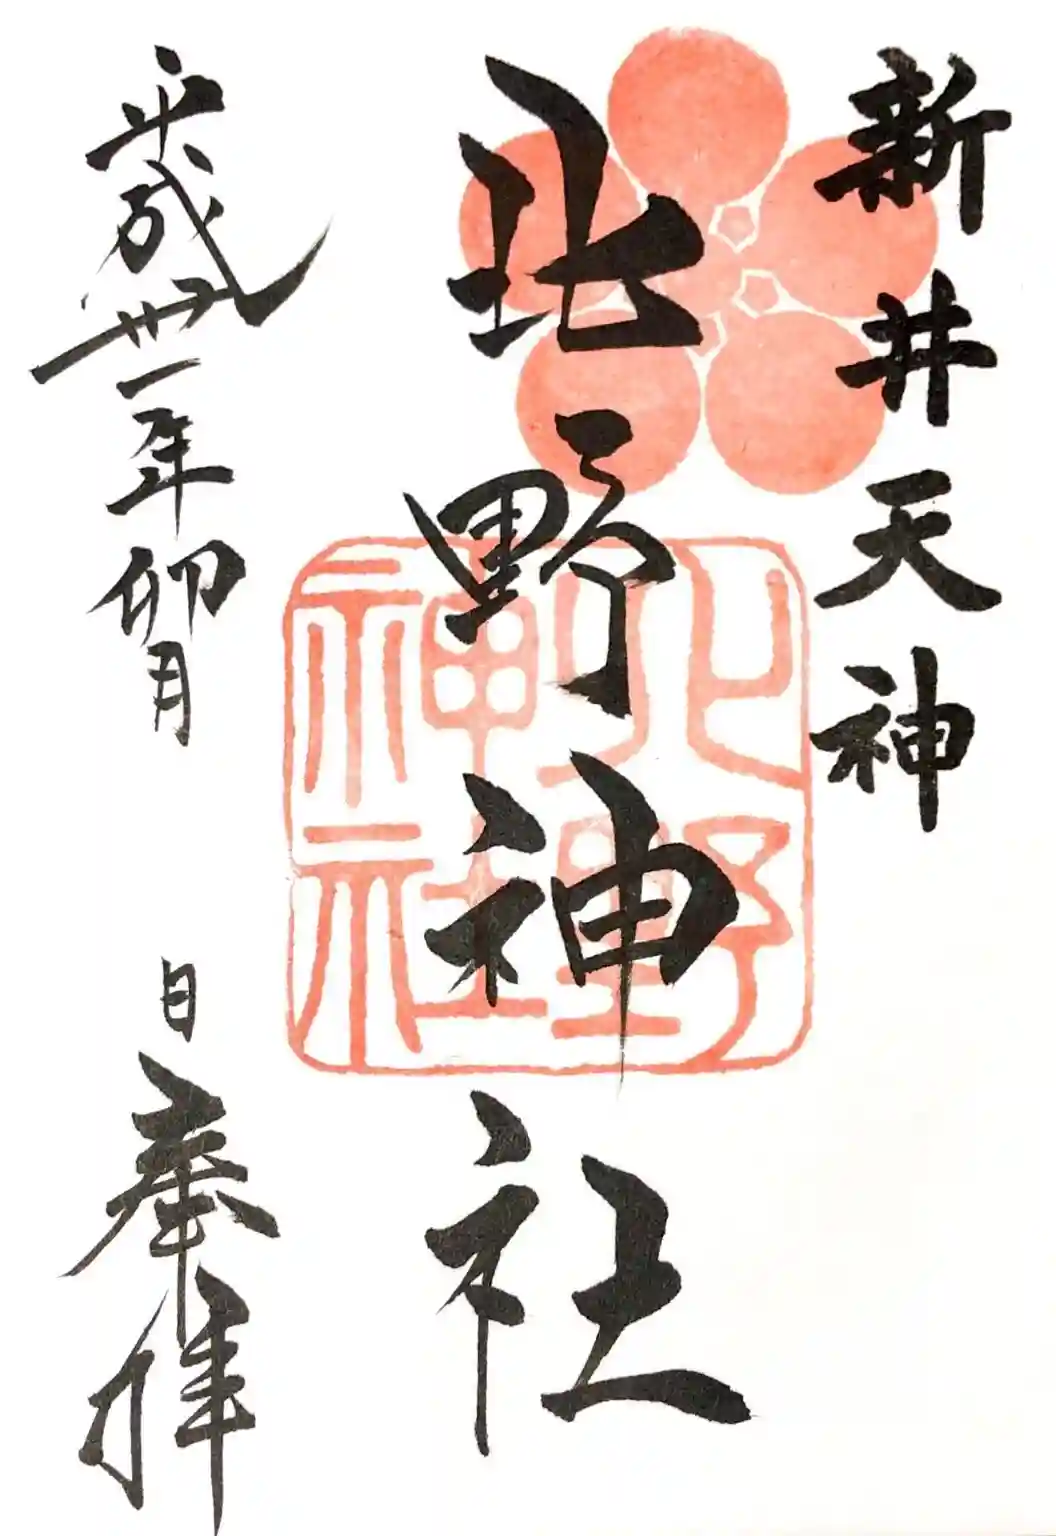 新井天神
北野神社
北野神社
平成卅一年卯月 日 奉拝